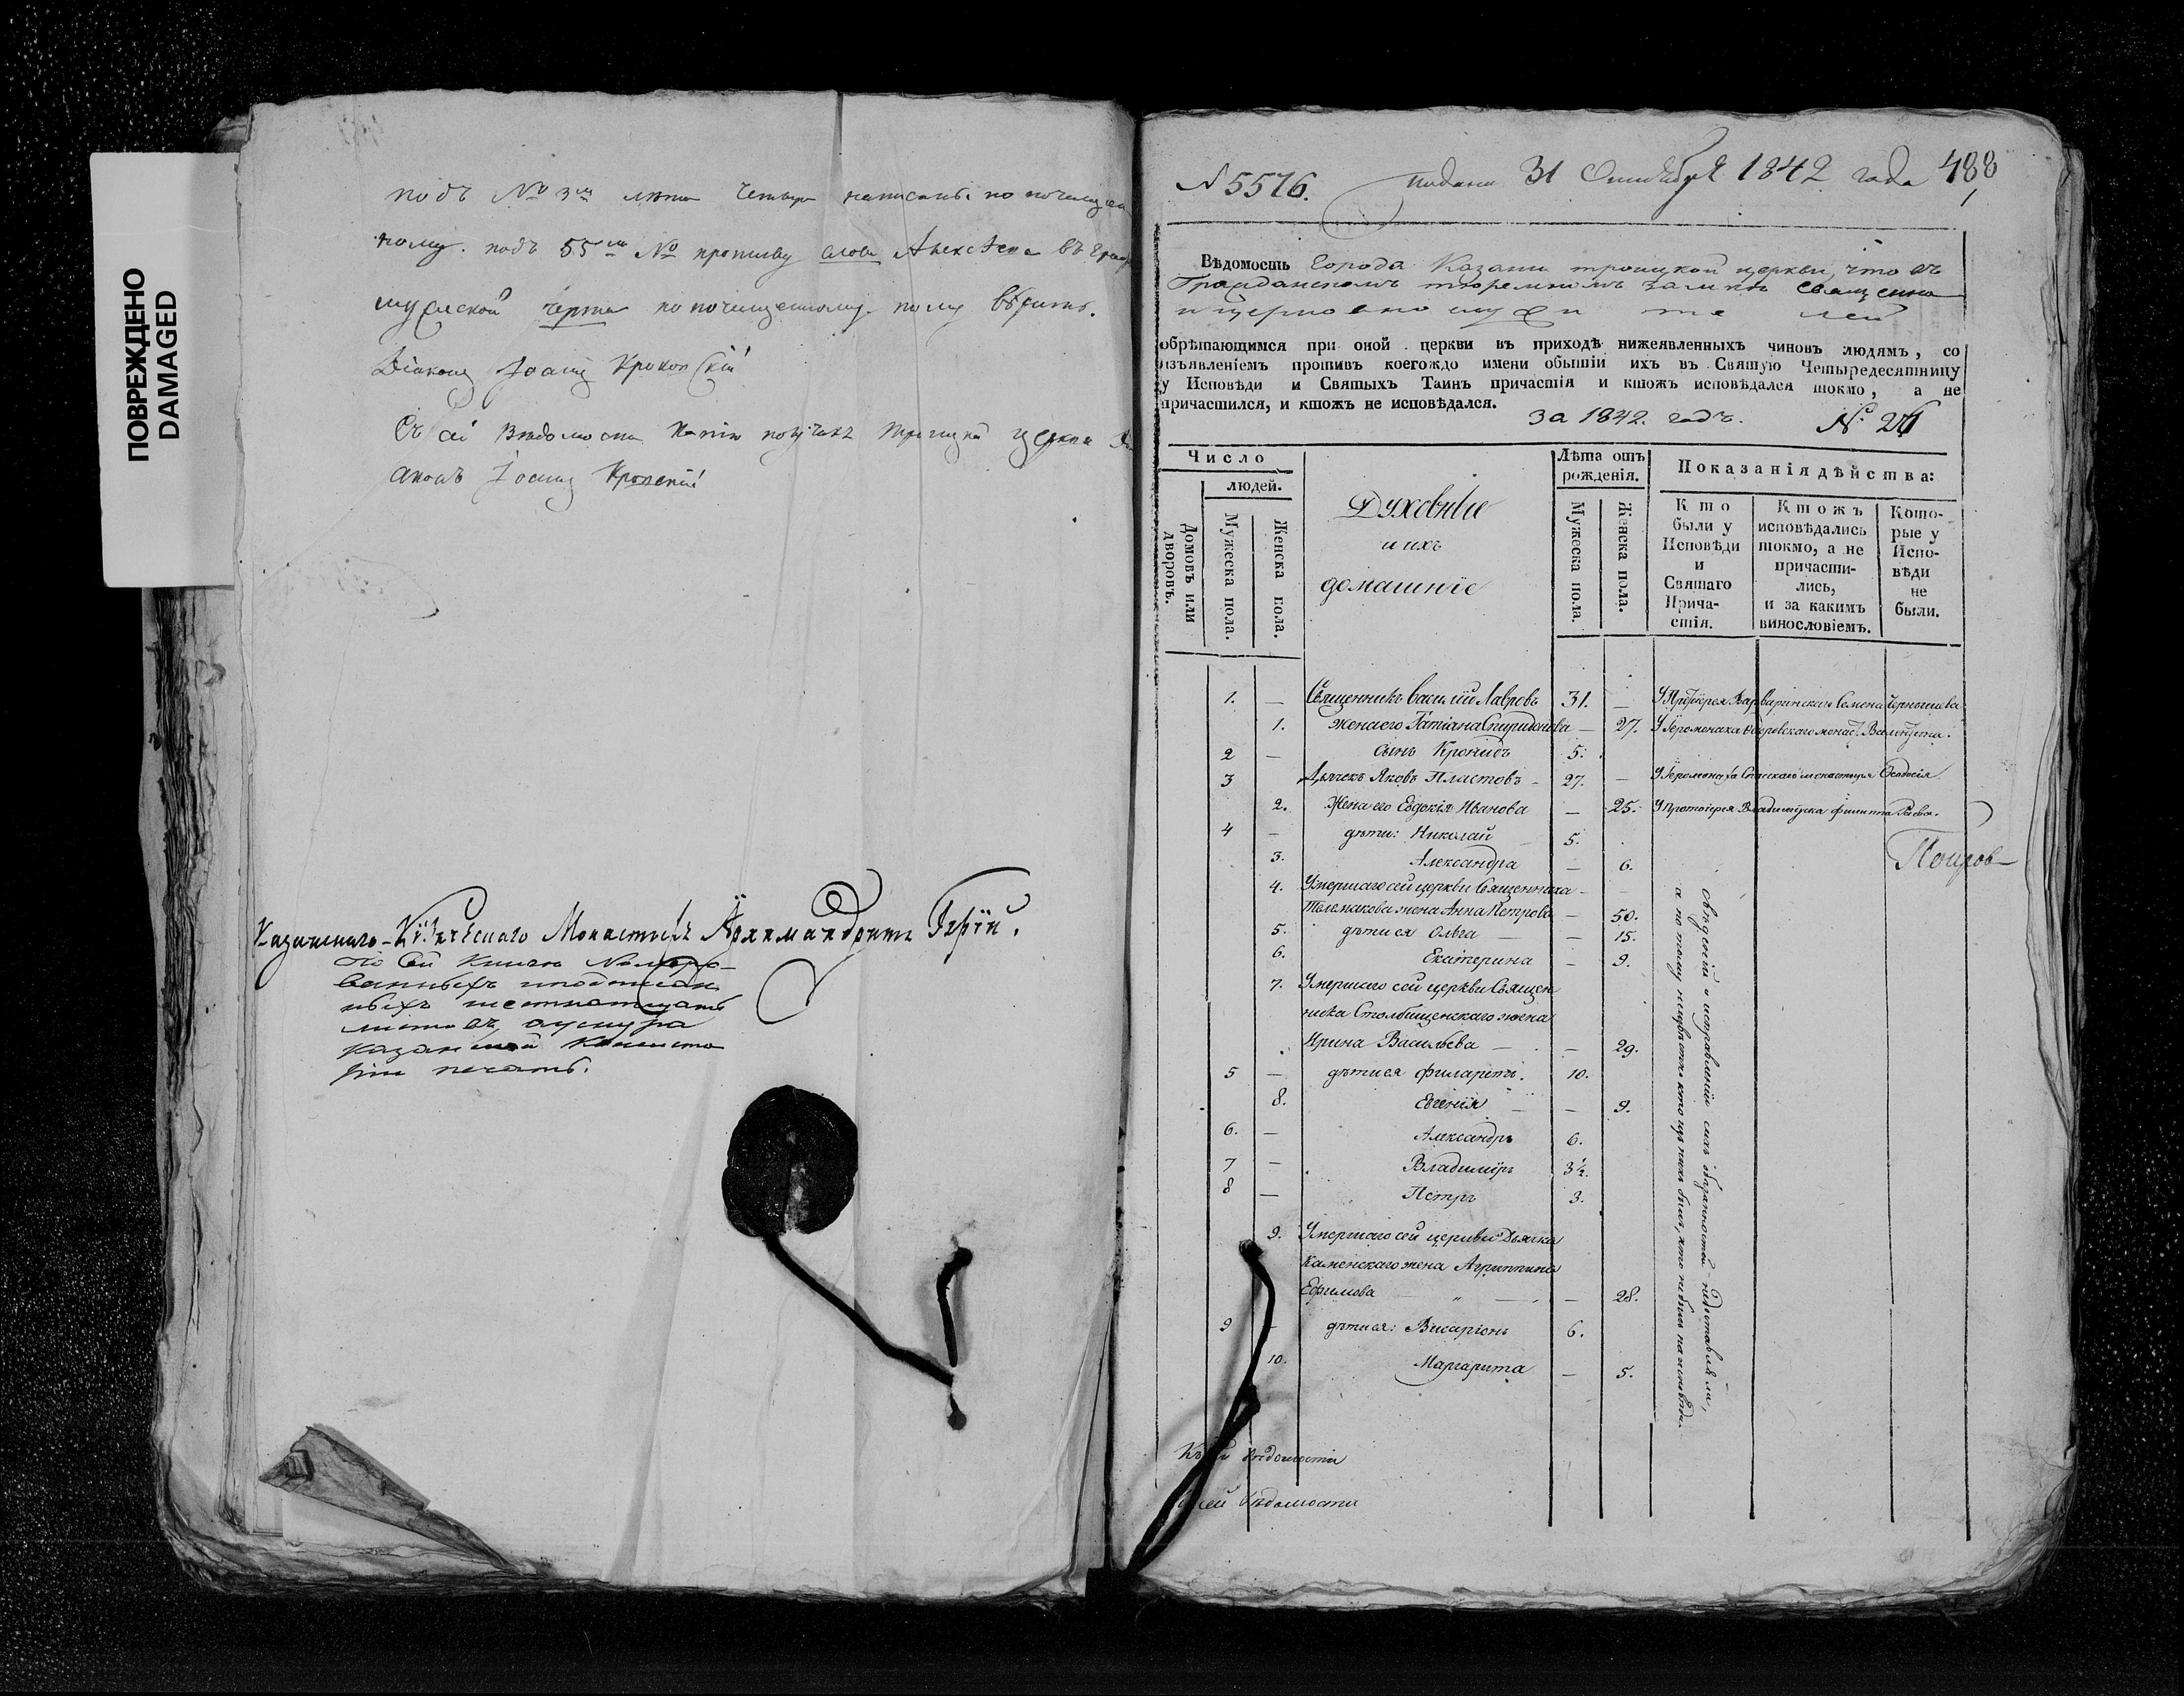 ПОВРЕЖДЕНО
DAMAGED
подъ № 3мъ лѣта четыре написаны по почищен
ному. подъ 55мъ № противу слова Алексѣева въ графѣ
мужеской черта по почищенному полу вѣрить.
Діаконъ Іоаннъ
Съ сей Вѣдомости Копію получилъ Троицкой церкви Ді
аконъ Іоаннъ
Казанскаго Монастыря Архимандритъ
По сей Книгѣ Номеро-
ванныхъ
ныхъ шестнадцать
листовъ, оу сургуча
Казанской Консисто
ріи печать.
№ 5576. Подана 31 Октября 1842 года 488
Вѣдомость Города Казани троицкой церкви, что въ
Гражданскомъ тюремномъ замкѣ священно
и церковно служителей
обрѣтающимся при оной церкви въ приходѣ нижеявленныхъ чиновъ людямъ, со
изъявленіемъ противъ коегождо имени обытіи ихъ въ Святую Четыредесятницу
у Исповѣди и Святыхъ Таинъ причастія и ктожъ исповѣдался токмо, а не
причастился, и ктожъ не исповѣдался.
За 1842. годъ. №
Число
людей.
Домовъ или дворовъ.
Мужеска пола.
Женска пола.
Духовные
и ихъ
домашніе
Лѣта отъ
рожденія.
Мужеска пола.
Женска пола.
Показанія дѣйства:
Кто
были у
Исповѣди
и
Святаго
Прича-
стія.
Ктожъ
исповѣдались
токмо, а не
причасти-
лись,
и за какимъ
винословіемъ.
Кото-
рые у
Испо-
вѣди
не
были.
1. — Священникъ Василій Лавровъ 31. — У Протоіерея Варваринскаго Семена
1. жена его Татіана Спиридонова — 27. У Іеромонаха монас.
2 — сынъ Кронидъ 5.
3 Дьячекъ Яковъ Пластовъ - 27. — У Іеромонаха Спасскаго монастыря Ѳеодосія
2. Жена его Евдокія Иванова — 25. У Протоіерея Филиппа
4 — дѣти: Николай 5.
3. Александра — 6.
4. Умершаго сей церкви Священника —
Телемакова жена Анна Петрова — 50.
5. дѣти ея Ольга — — 15.
6. Екатерина — 9.
7. Умершаго сей церкви Священ
ника Столбищенскаго жена
Ирина Васильева — — 29.
5 — дѣти ея Филаретъ. 10.
8. Евгенія — — 9.
6. — Александръ 6.
7 — Владиміръ 3½.
8 — Петръ 3.
9. Умершаго сей церкви Дьячка
Каменскаго жена Агриппина
Ефимова — „ — — 28.
9 — дѣти ея: Висаріонъ 6.
10. Маргарита — 5.
Свѣденій о исправленіи сихъ обязанностей не доставили,
а по тому неизвѣстно кто изъ нихъ былъ, кто не былъ на исповѣди.
Къ сей вѣдомости
Къ сей вѣдомости